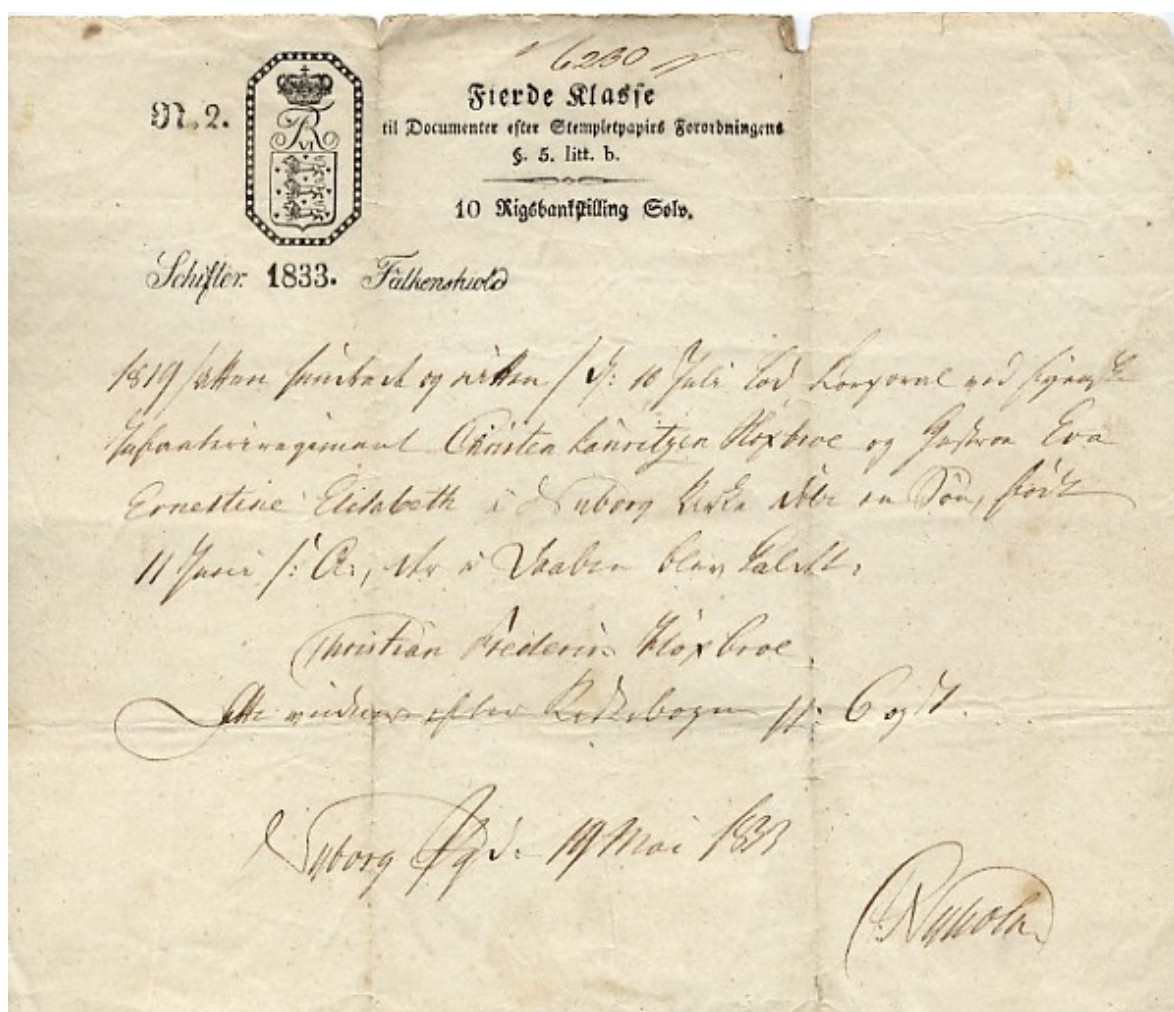 6230
Fierde Klasse
N. 2.
til Documenter efter Stempletpapirs Forordningens
§. 5. litt. b.
FR VI
10 Rigsbankskilling Sølv.
Schifter. 1833. Falkenskiold
1819 /atten hundrede og nitten/ d: 10 Juli lod Corporal ved fyenske
Infanteriregiment Christen Lauritzen Höxbroe og Hustroe Eva
Ernestine Elisabeth i Nyborg Kirke døbe en Søn, født
11 Juni s: A:, der i Daaben blev kaldt:
Christian Frederik Höxbroe.
Dette vidner efter Kirkebogen
Nyborg Pgd. 19 Mai 1833